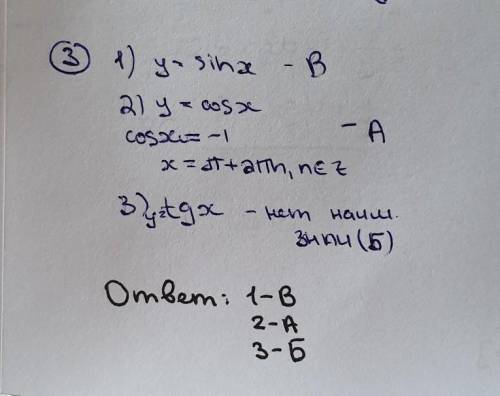 ③ 1) y = sin x - В
2) y = cos x
cos x = -1 - А
x = π + 2πn, n ∈ Z
3) y = tg x - нет наим.
знач (Б)
Ответ: 1-В
2-А
3-Б